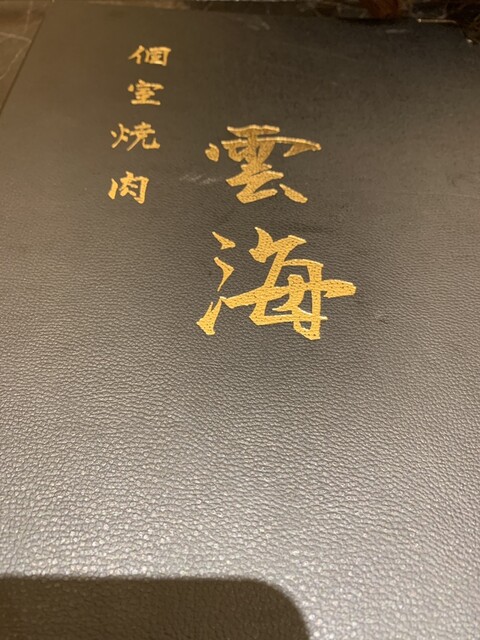 雲海
個室焼肉